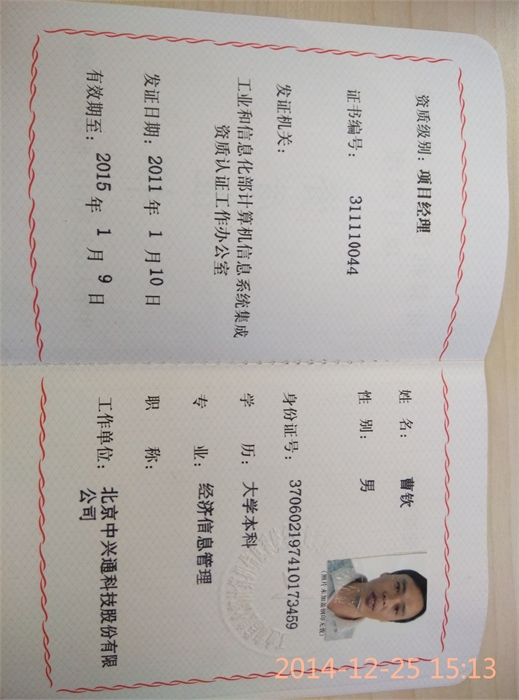 资质级别：项目经理
证书编号： 311110044
发证机关：
工业和信息化部计算机信息系统集成
资质认证工作办公室
发证日期： 2011 年 1 月 10 日
有效期至： 2015 年 1 月 9 日
姓 名： 曹钦
性 别： 男
身份证号： 370602197410173459
学 历： 大学本科
专 业： 经济信息管理
职 称：
工作单位： 北京中兴通科技股份有限
公司
（照片未加盖钢印无效）
2014-12-25 15:13